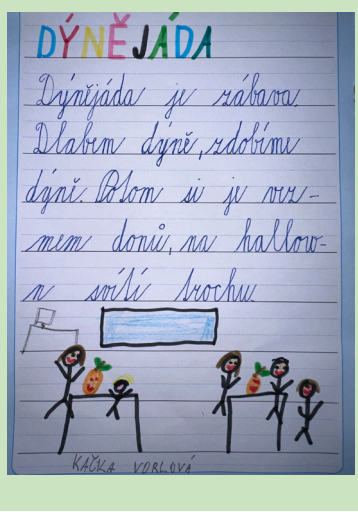 DÝNĚJÁDA
Dýnějáda je zábava.
Dlabem dýně, zdobíme
dýně. Potom si je vez-
mem domů, na hallow-
n svítí trochu.
KAČKA VORLOVÁ